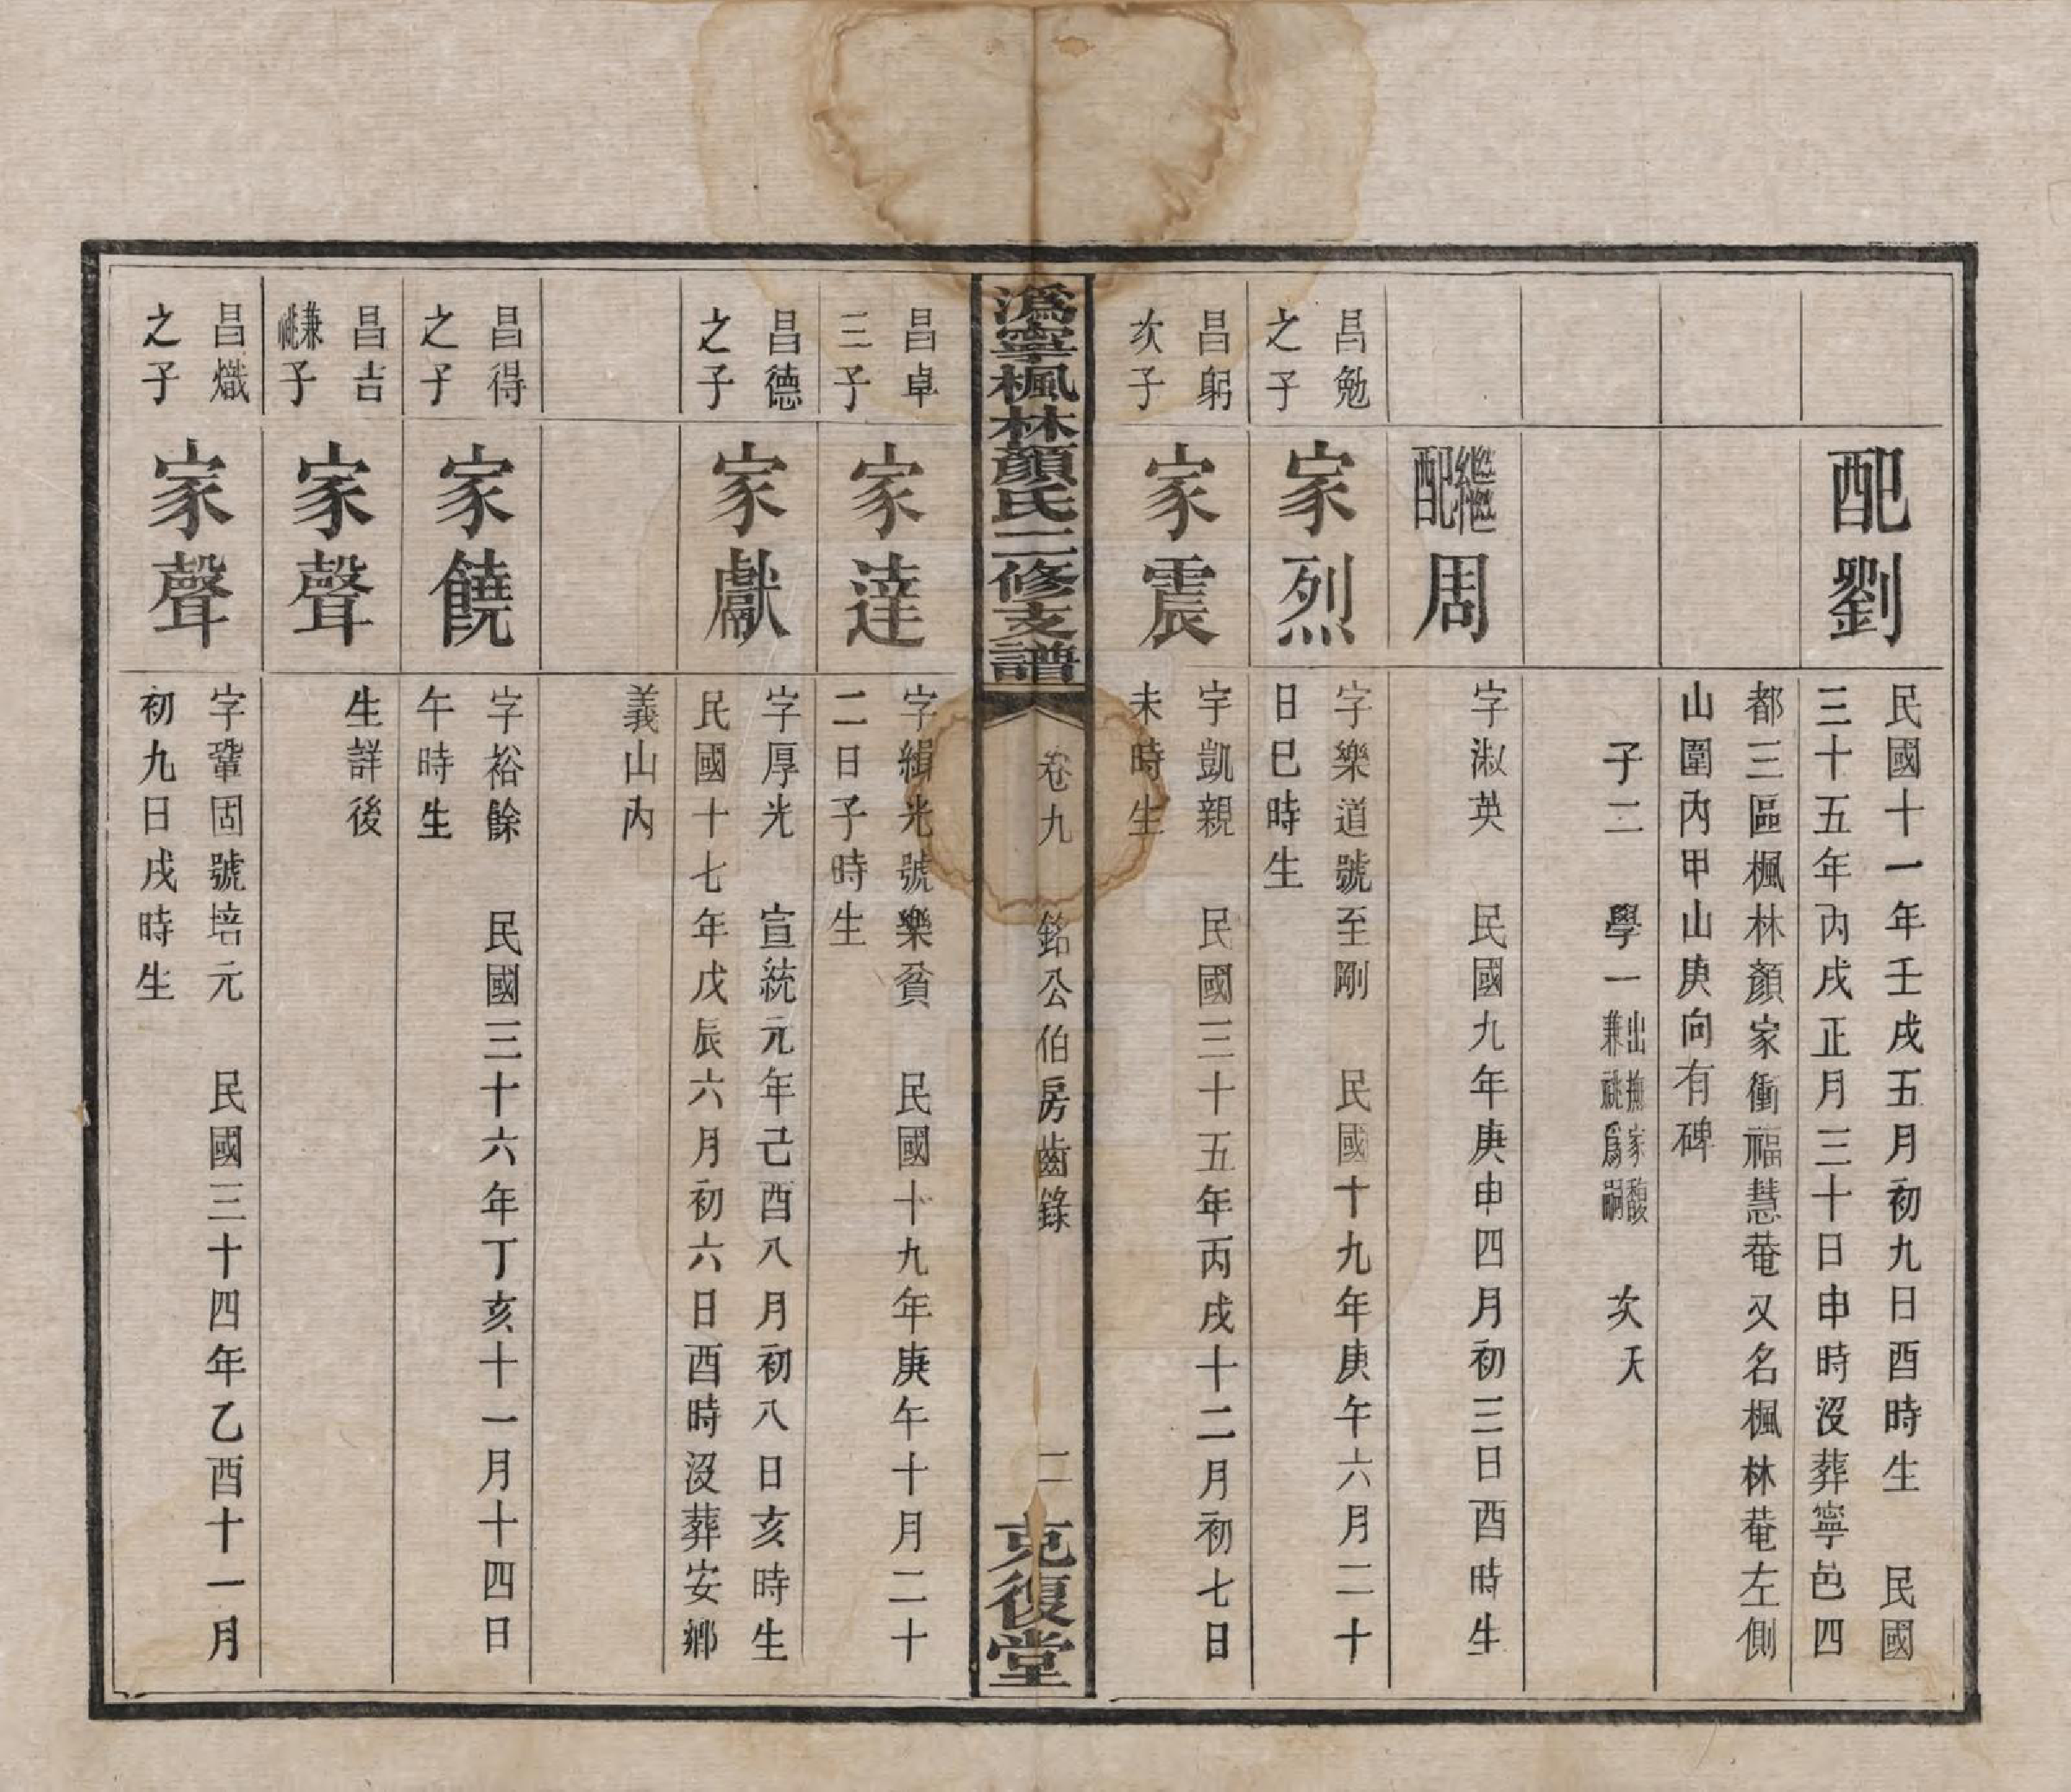 配劉
民國十一年壬戌五月初九日酉時生　民國
三十五年丙戌正月三十日申時沒葬寧邑四
都三區楓林顏家衝福慧菴又名楓林菴左側
山圍內甲山庚向有碑
子二　學一
出撫家馥
兼祧爲嗣
次夭
繼配周
字淑英　民國九年庚申四月初三日酉時生
昌勉
之子
家烈
字樂道號至剛　民國十九年庚午六月二十
日巳時生
昌躬
次子
家震
字凱親　民國三十五年丙戌十二月初七日
未時生
溈寧楓林顏氏二修支譜
卷九　銘公伯房齒錄
二
克復堂
昌卓
三子
家達
字緝光號樂貧　民國十九年庚午十月二十
二日子時生
昌德
之子
家獻
字厚光　宣統元年己酉八月初八日亥時生
民國十七年戊辰六月初六日酉時沒葬安鄉
義山內
昌得
之子
家饒
字裕餘　民國三十六年丁亥十一月十四日
午時生
昌吉
兼祧子
家聲
生詳後
昌熾
之子
家聲
字鞏固號培元　民國三十四年乙酉十一月
初九日戌時生